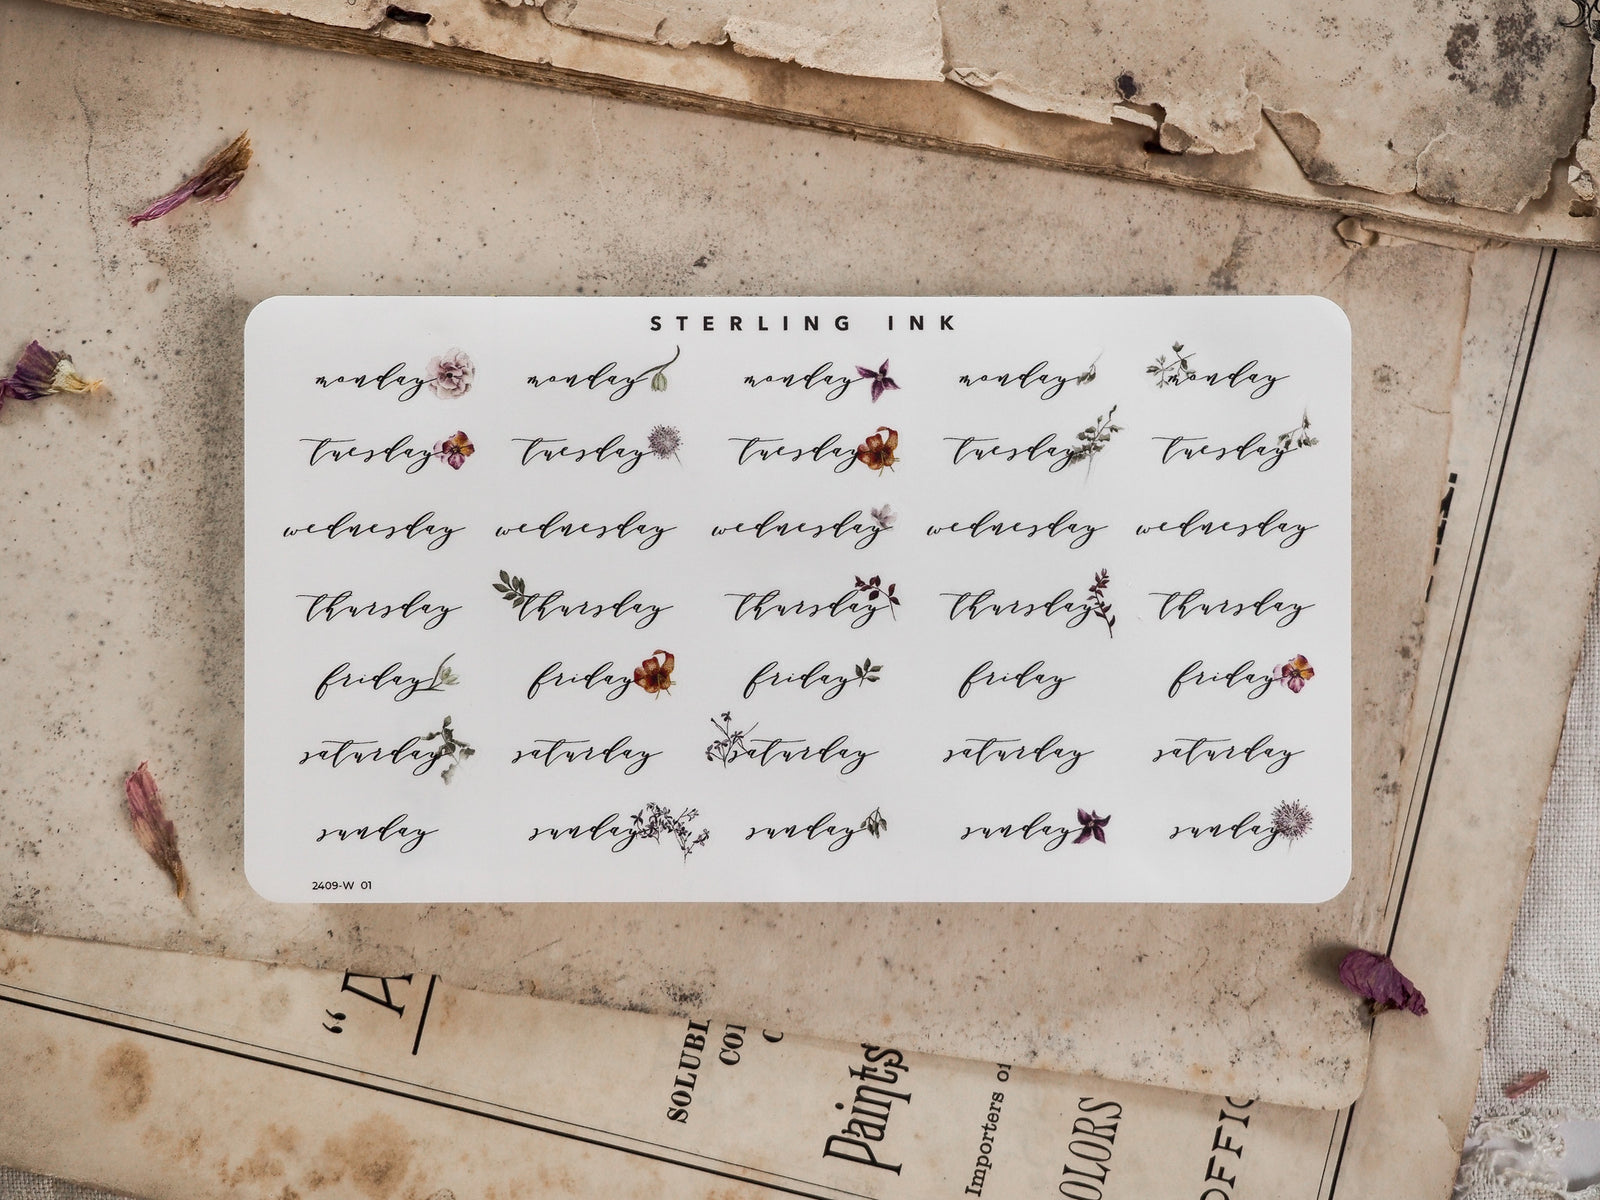 STERLING INK
monday monday monday monday monday
tuesday tuesday tuesday tuesday tuesday
wednesday wednesday wednesday wednesday wednesday
thursday thursday thursday thursday thursday
friday friday friday friday friday
saturday saturday saturday saturday saturday
sunday sunday sunday sunday sunday
2409-W 01
"A
SOLUBL
COL
Paints
Importers of
OLORS
OFFIC